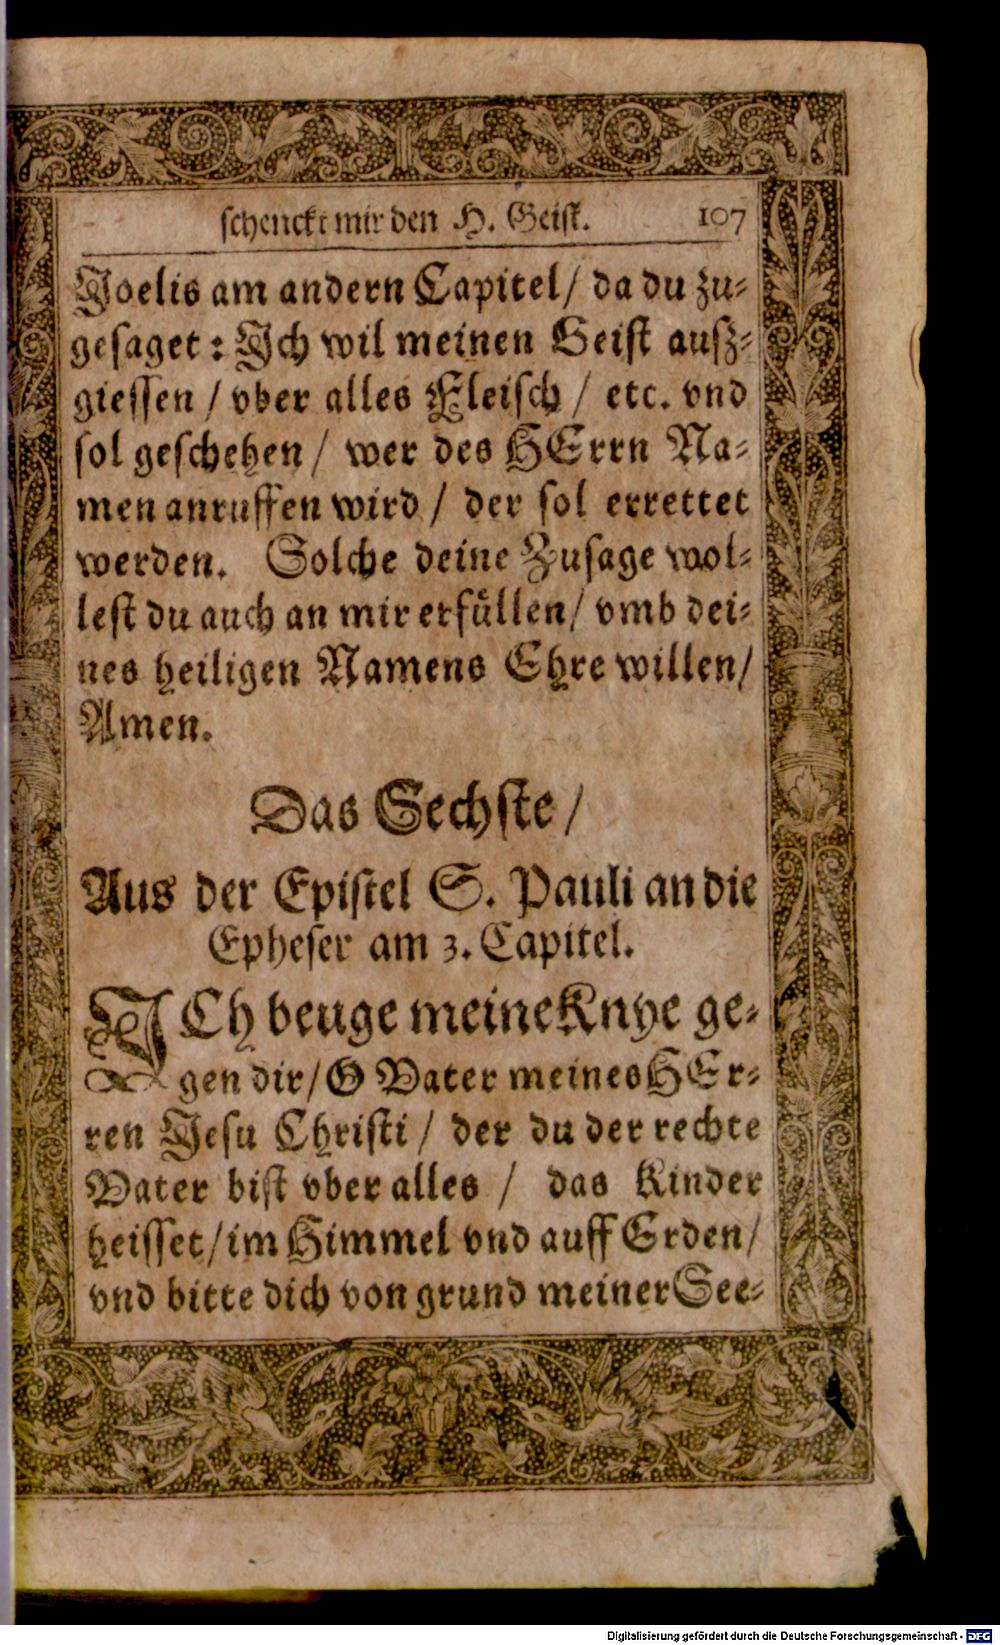 schenckt mir den H. Geist. 107
Joelis am andern Capitel/ da du zu-
gesaget: Jch wil meinen Geist ausz-
giessen / vber alles Fleisch / etc. vnd
sol geschehen/ wer des HErrn Na-
men anruffen wird / der sol errettet
werden. Solche deine Zusage wol-
lest du auch an mir erfüllen/ vmb dei-
nes heiligen Namens Ehre willen/
Amen.
Das Sechste/
Aus der Epistel S. Pauli an die
Epheser am 3. Capitel.
JCh beuge meine Knye ge-
gen dir/ O Vater meines HEr-
ren Jesu Christi / der du der rechte
Vater bist vber alles / das Kinder
heisset/ im Himmel vnd auff Erden/
vnd bitte dich von grund meiner See-
Digitalisierung gefördert durch die Deutsche Forschungsgemeinschaft - DFG